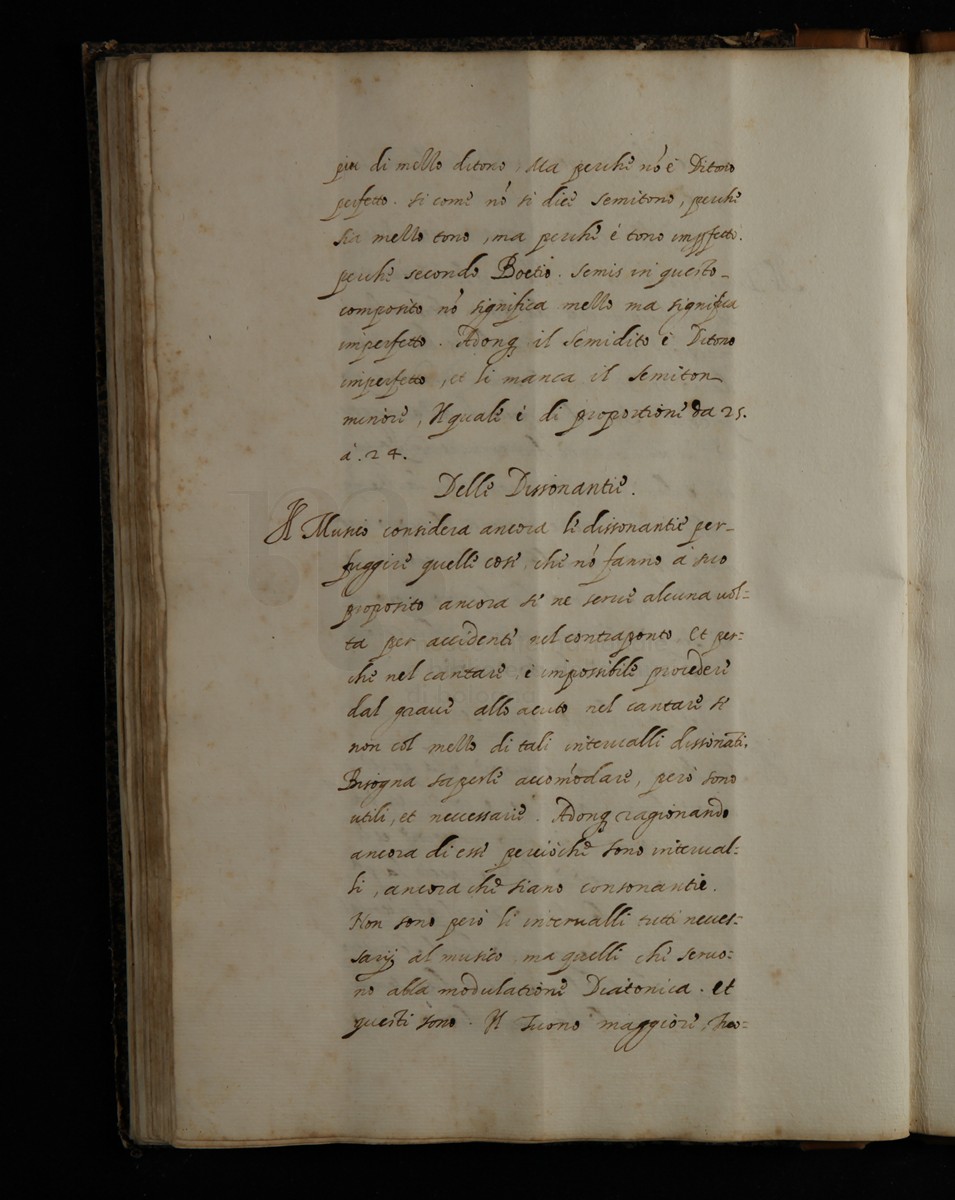 piu di mezzo ditono, Ma perche nõ è Ditono
perfetto. si come nõ si dice semitono, perche
sia mezzo tono, ma perche è tono imperfetto.
perche secondo Boetio. semis in questo
composito nõ significa mezzo ma significa
imperfetto. Adonq il semidito è Ditono
imperfetto, et li manca il semiton
minore, Il quale è di proportione da 25.
à. 24.
Delle Dissonantie.
Il Musico considera ancora le dissonantie per-
fuggire quelle cose, che nõ fanno à suo
proposito ancora se ne serve alcuna vol=
ta per accidente nel contraponto Et per=
che nel cantare, è impossibile procedere
dal grave allo acuto nel cantare se
non col mezzo di tali intervalli dissonãti,
Bisogna saperle accõmodare, però sono
utili, et necessarie. Adonq ragionando
ancora di esse percioche sono interval=
li, ancora che siano consonantie.
Non sono però li intervalli tutti neces=
sarij al musico ma quelli che servo=
no alla modulatione Diatonica. et
questi sono. Il Tuono maggiore,